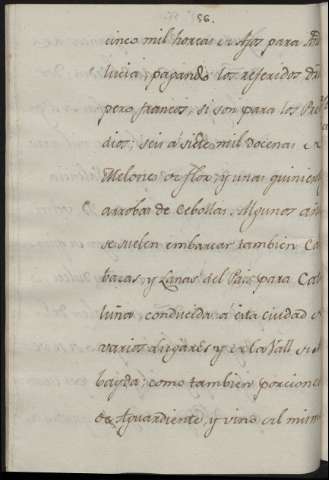 56.
cinco mil horcas de Ajos para An
lucia, pagando los referidos d
pero francos, si son para los Pre
dios; seis á siete mil docenas de
Melones de flor, y unas quinient
arrobas de Cebollas. Algunos añ
se suelen embarcar tambien Ca
bazas, y Lanas del Pais para Cat
luña, conducida á esta ciudad d
varios lugares y de la Vall d
bayda; como tambien porcione
de Aguardiente, y vino al mism